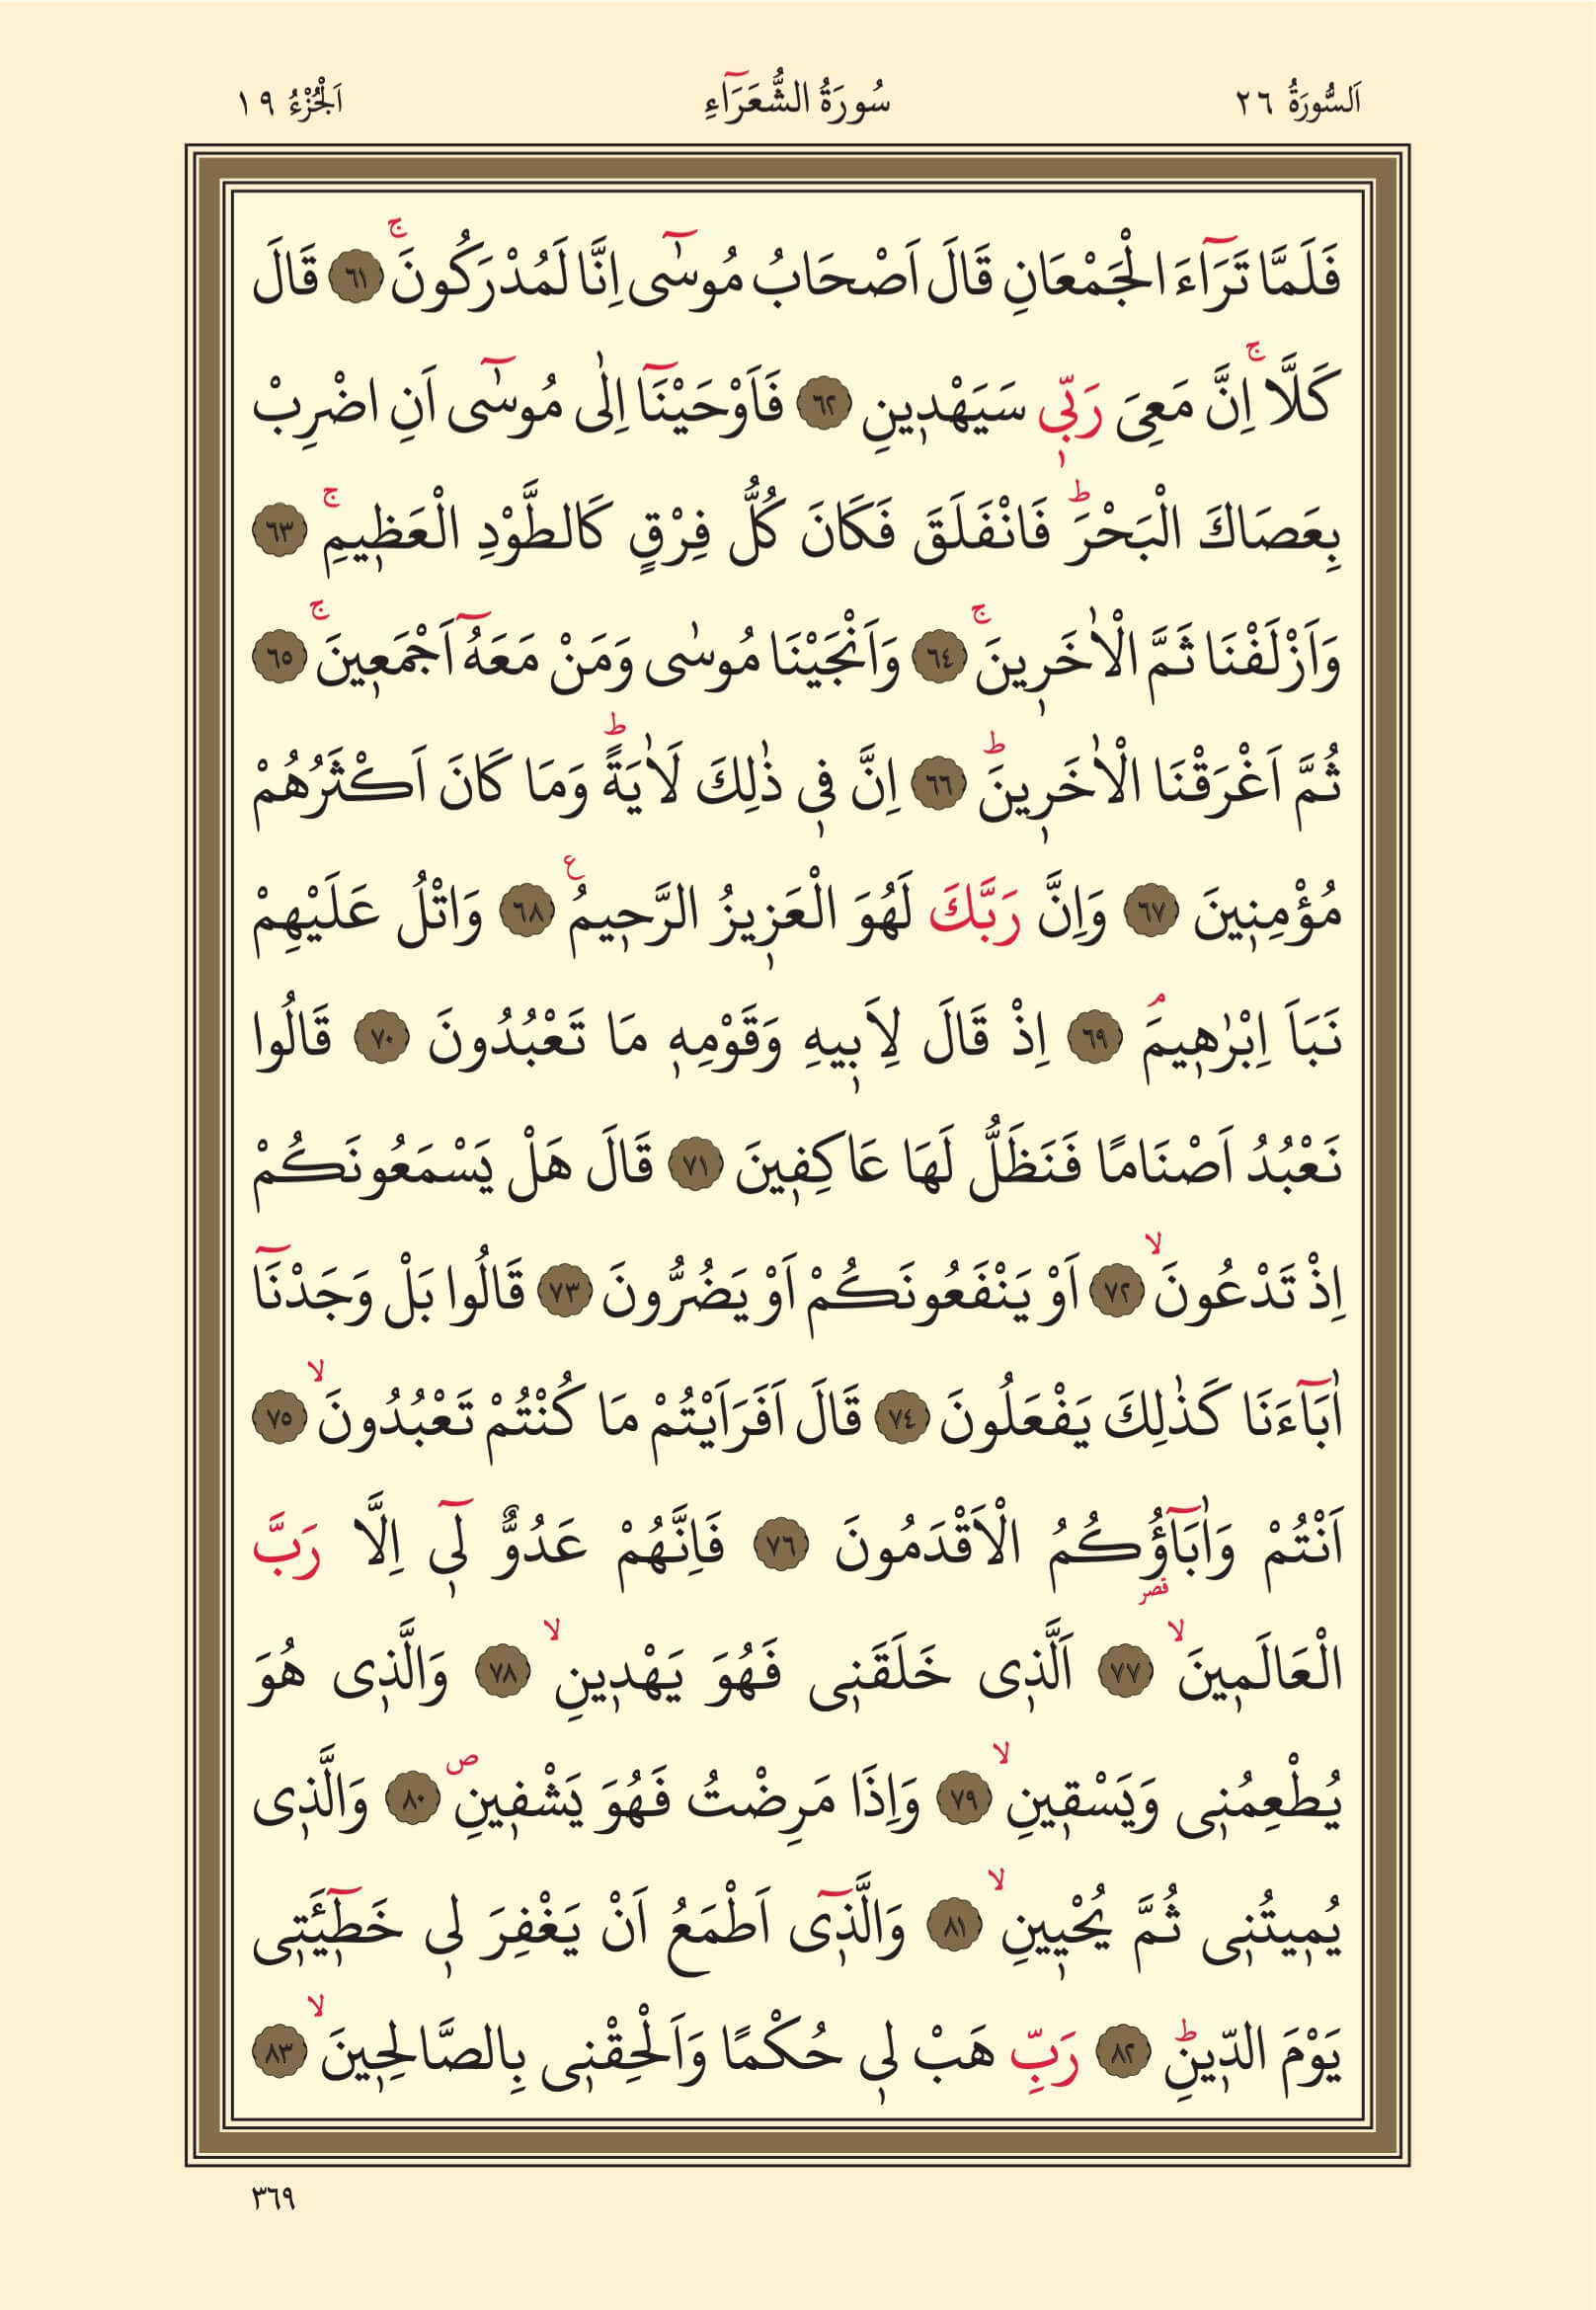 اَلسُّورَةُ ٢٦ سُورَةُ الشُّعَرَٓاءِ اَلْجُزْءُ ١٩
فَلَمَّا تَرَٓاءَ الْجَمْعَانِ قَالَ اَصْحَابُ مُوسٰٓى اِنَّا لَمُدْرَكُونَۚ ﴿٦١﴾ قَالَ
كَلَّاۚ اِنَّ مَعِىَ رَبّ۪ى سَيَهْد۪ينِ ﴿٦٢﴾ فَاَوْحَيْنَٓا اِلٰى مُوسٰٓى اَنِ اضْرِبْ
بِعَصَاكَ الْبَحْرَؕ فَانْفَلَقَ فَكَانَ كُلُّ فِرْقٍ كَالطَّوْدِ الْعَظ۪يمِۚ ﴿٦٣﴾
وَاَزْلَفْنَا ثَمَّ الْاٰخَر۪ينَۚ ﴿٦٤﴾ وَاَنْجَيْنَا مُوسٰى وَمَنْ مَعَهُٓ اَجْمَع۪ينَۚ ﴿٦٥﴾
ثُمَّ اَغْرَقْنَا الْاٰخَر۪ينَؕ ﴿٦٦﴾ اِنَّ ف۪ى ذٰلِكَ لَاٰيَةًؕ وَمَا كَانَ اَكْثَرُهُمْ
مُؤْمِن۪ينَ ﴿٦٧﴾ وَاِنَّ رَبَّكَ لَهُوَ الْعَز۪يزُ الرَّح۪يمُ ع ﴿٦٨﴾ وَاتْلُ عَلَيْهِمْ
نَبَاَ اِبْرٰه۪يمَۢ ﴿٦٩﴾ اِذْ قَالَ لِاَب۪يهِ وَقَوْمِه۪ مَا تَعْبُدُونَ ﴿٧٠﴾ قَالُوا
نَعْبُدُ اَصْنَامًا فَنَظَلُّ لَهَا عَاكِف۪ينَ ﴿٧١﴾ قَالَ هَلْ يَسْمَعُونَكُمْ
اِذْ تَدْعُونَۙ ﴿٧٢﴾ اَوْ يَنْفَعُونَكُمْ اَوْ يَضُرُّونَ ﴿٧٣﴾ قَالُوا بَلْ وَجَدْنَٓا
اٰبَٓاءَنَا كَذٰلِكَ يَفْعَلُونَ ﴿٧٤﴾ قَالَ اَفَرَاَيْتُمْ مَا كُنْتُمْ تَعْبُدُونَۙ ﴿٧٥﴾
اَنْتُمْ وَاٰبَٓاؤُ۬كُمُ الْاَقْدَمُونَ ﴿٧٦﴾ فَاِنَّهُمْ عَدُوٌّ ل۪ٓى اِلَّا رَبَّ
قصر
الْعَالَم۪ينَۙ ﴿٧٧﴾ اَلَّذ۪ى خَلَقَن۪ى فَهُوَ يَهْد۪ينِۙ ﴿٧٨﴾ وَالَّذ۪ى هُوَ
يُطْعِمُن۪ى وَيَسْق۪ينِۙ ﴿٧٩﴾ وَاِذَا مَرِضْتُ فَهُوَ يَشْف۪ينِ ص ﴿٨٠﴾ وَالَّذ۪ى
يُم۪يتُن۪ى ثُمَّ يُحْي۪ينِۙ ﴿٨١﴾ وَالَّذ۪ٓى اَطْمَعُ اَنْ يَغْفِرَ ل۪ى خَط۪ٓيـَٔت۪ى
يَوْمَ الدّ۪ينِؕ ﴿٨٢﴾ رَبِّ هَبْ ل۪ى حُكْمًا وَاَلْحِقْن۪ى بِالصَّالِح۪ينَۙ ﴿٨٣﴾
٣٦٩